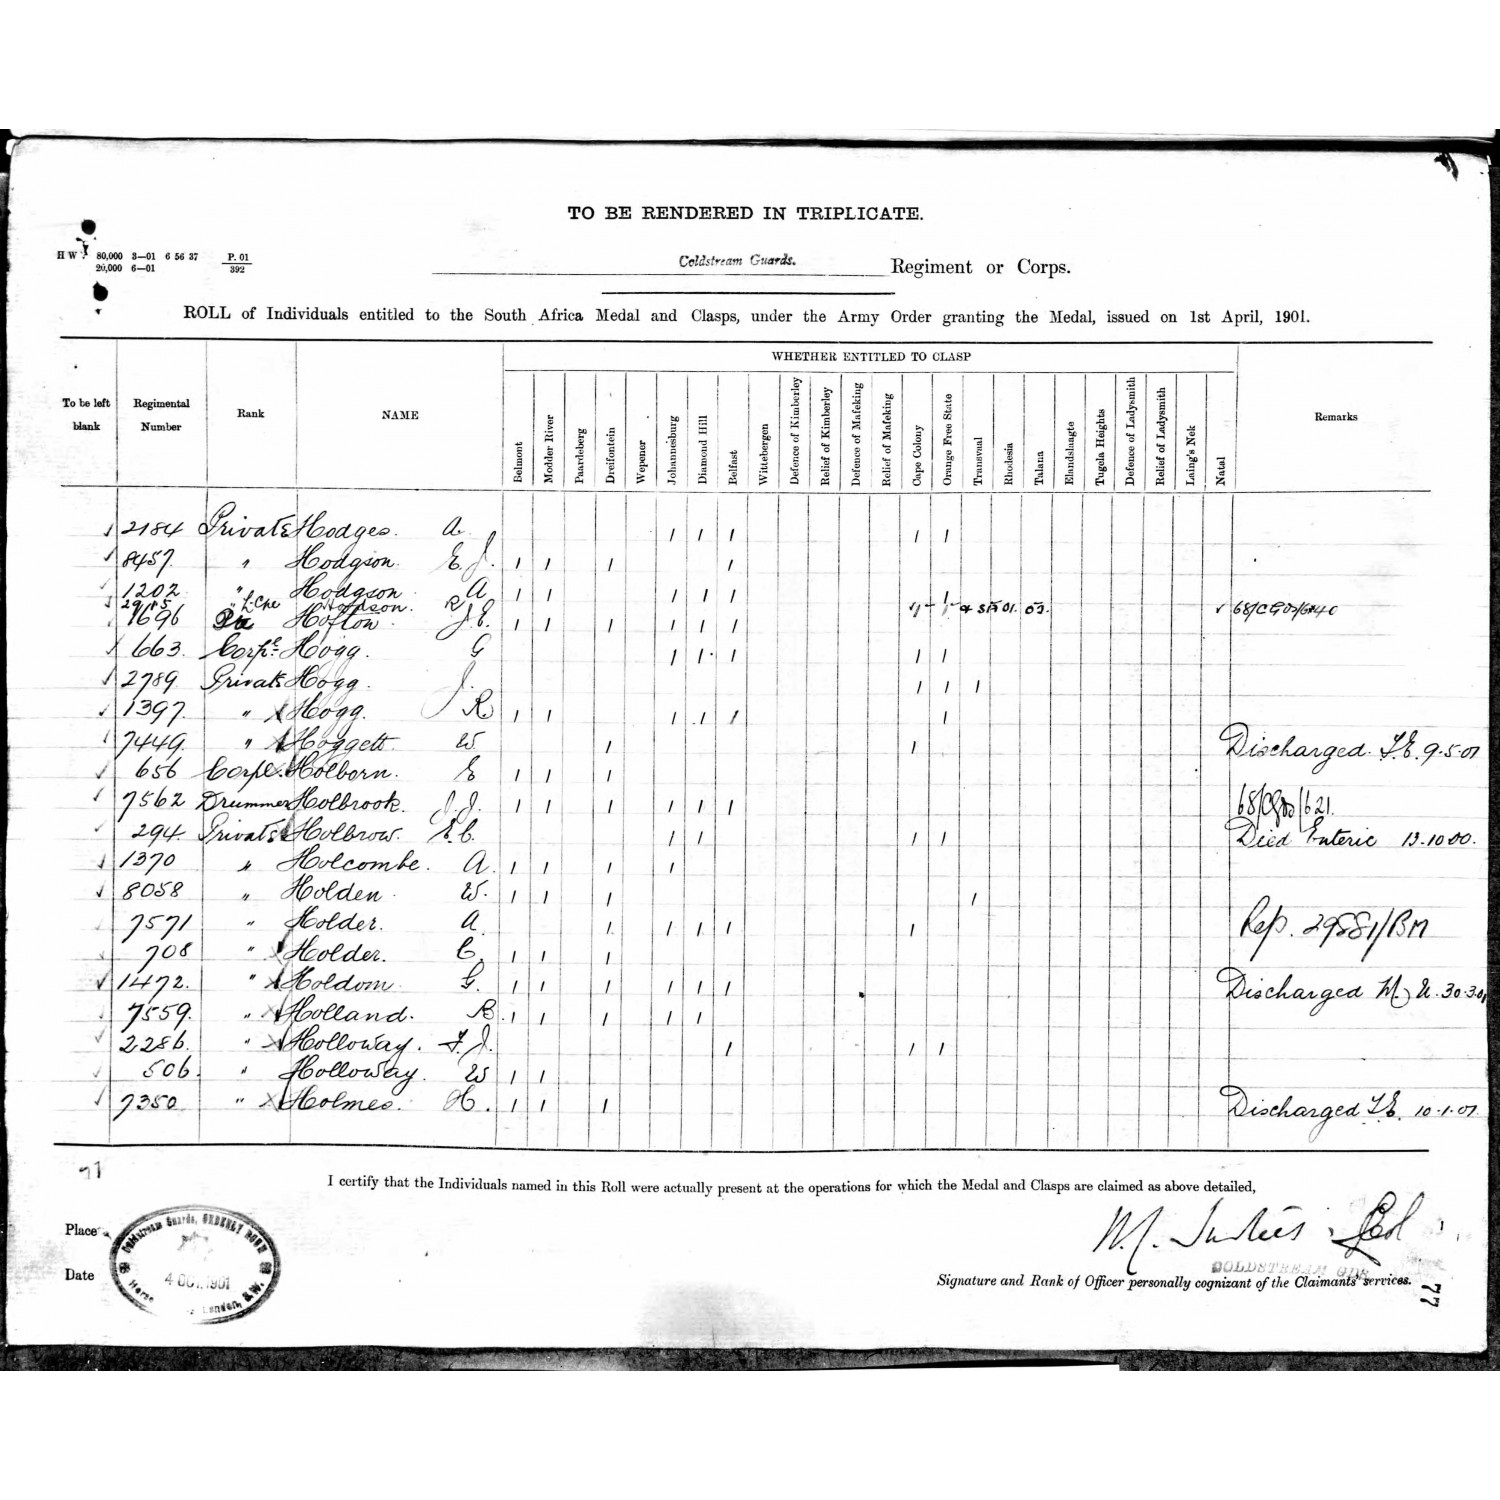 TO BE RENDERED IN TRIPLICATE.
H W 80,000 3—01 6 56 37 P. 01
20,000 6—01 392
Coldstream Guards. Regiment or Corps.
ROLL of Individuals entitled to the South Africa Medal and Clasps, under the Army Order granting the Medal, issued on 1st April, 1901.
WHETHER ENTITLED TO CLASP
To be left blank Regimental Number Rank NAME Belmont Modder River Paardeberg Dreifontein Wepener Johannesburg Diamond Hill Belfast Wittebergen Defence of Kimberley Relief of Kimberley Defence of Mafeking Relief of Mafeking Cape Colony Orange Free State Transvaal Rhodesia Talana Elandslaagte Tugela Heights Defence of Ladysmith Relief of Ladysmith Laing's Nek Natal Remarks
✓ 2184 Private Hodges. A. 1 1 1 1 1
✓ 8457. " Hodgson. E. J. 1 1 1 1
✓ 1202 " Hodgson A 1 1 1 1 1 1
✓ 2915 " L-Cpe Hodson. R 01. 03. ✓ 68/CG
✓ 1696 Hofton. J. E. 1 1 1 1 1 1
✓ 663. Corpl Hogg. G 1 1 1 1 1
✓ 2789. Private Hogg. J. 1 1 1
✓ 1397. " Hogg. R 1 1 1 1 1 1
✓ 7449. " Hoggett. W. 1 1 Discharged. T.E. 9.5.01
✓ 656 Corpl. Holborn. E 1 1 1
✓ 7562 Drummer Holbrook. J. J. 1 1 1 1 1 1 621.
✓ 294. Private Holbrow. E. C. 1 1 1 1 Died Enteric 13.10.00.
✓ 1370 " Holcombe. A. 1 1 1 1
✓ 8058 " Holden. W. 1 1 1 1
✓ 7571 " Holder. A. 1 1 1 1 1 Rep. 29881/BM
✓ 708 " Holder. C. 1 1 1
✓ 1472. " Holdom. G. 1 1 1 1 1 1 Discharged M. U. 30.3.01
✓ 7559. " Holland. B. 1 1 1 1 1
✓ 2286. " Holloway. F. J. 1 1 1
✓ 506. " Holloway. W 1 1
✓ 7350 " Holmes. H. 1 1 1 Discharged T.E. 10.1.01.
I certify that the Individuals named in this Roll were actually present at the operations for which the Medal and Clasps are claimed as above detailed,
Place
Date
Coldstream Guards, ORDERLY ROOM
4 OCT. 1901
London, S.W.
COLDSTREAM GDS
Signature and Rank of Officer personally cognizant of the Claimants' services.
77